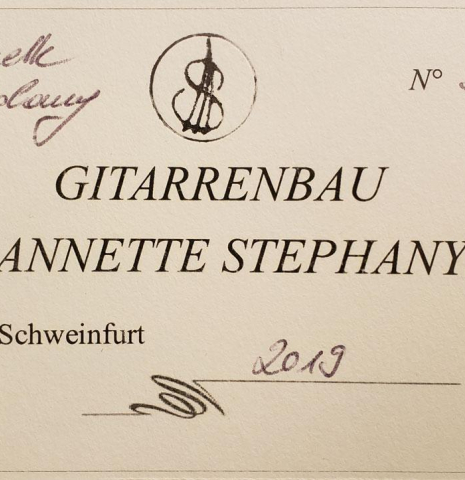 N°
GITARRENBAU
ANNETTE STEPHANY
Schweinfurt
2019